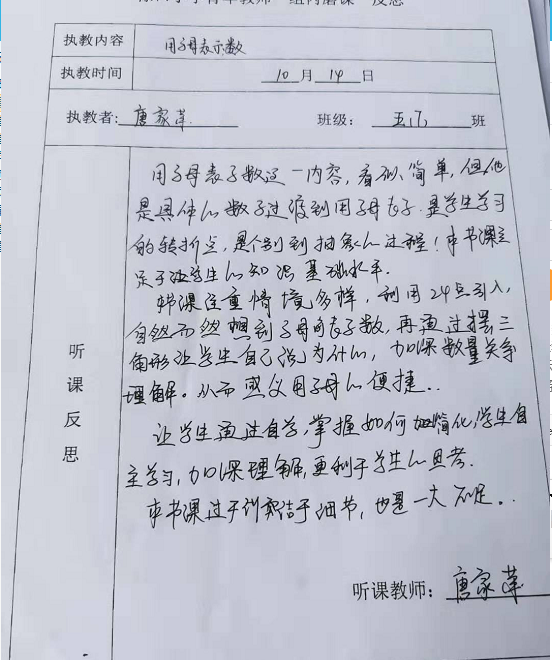 执教内容 用字母表示数
执教时间 10 月 14 日
执教者: 唐家苹 班级: 五(7) 班
用字母表示数这一内容,看似简单,但他
是具体的数字过渡到用字母表示,是学生学习
的转折点,是个别到抽象的过程!本节课立
足于让学生的知识基础水平.
本节课注重情境多样,利用24点引入,
自然而然想到字母的表示数,再通过摆三
角形让学生自己说为什么,加深数量关系
理解。从而感义用字母的便捷..
让学生通过自学,掌握如何加简化,学生自
主学习,加深理解,更利于学生的思考.
本节课过于纠结于细节,也是一大不足..
听课反思
听课教师: 唐家苹